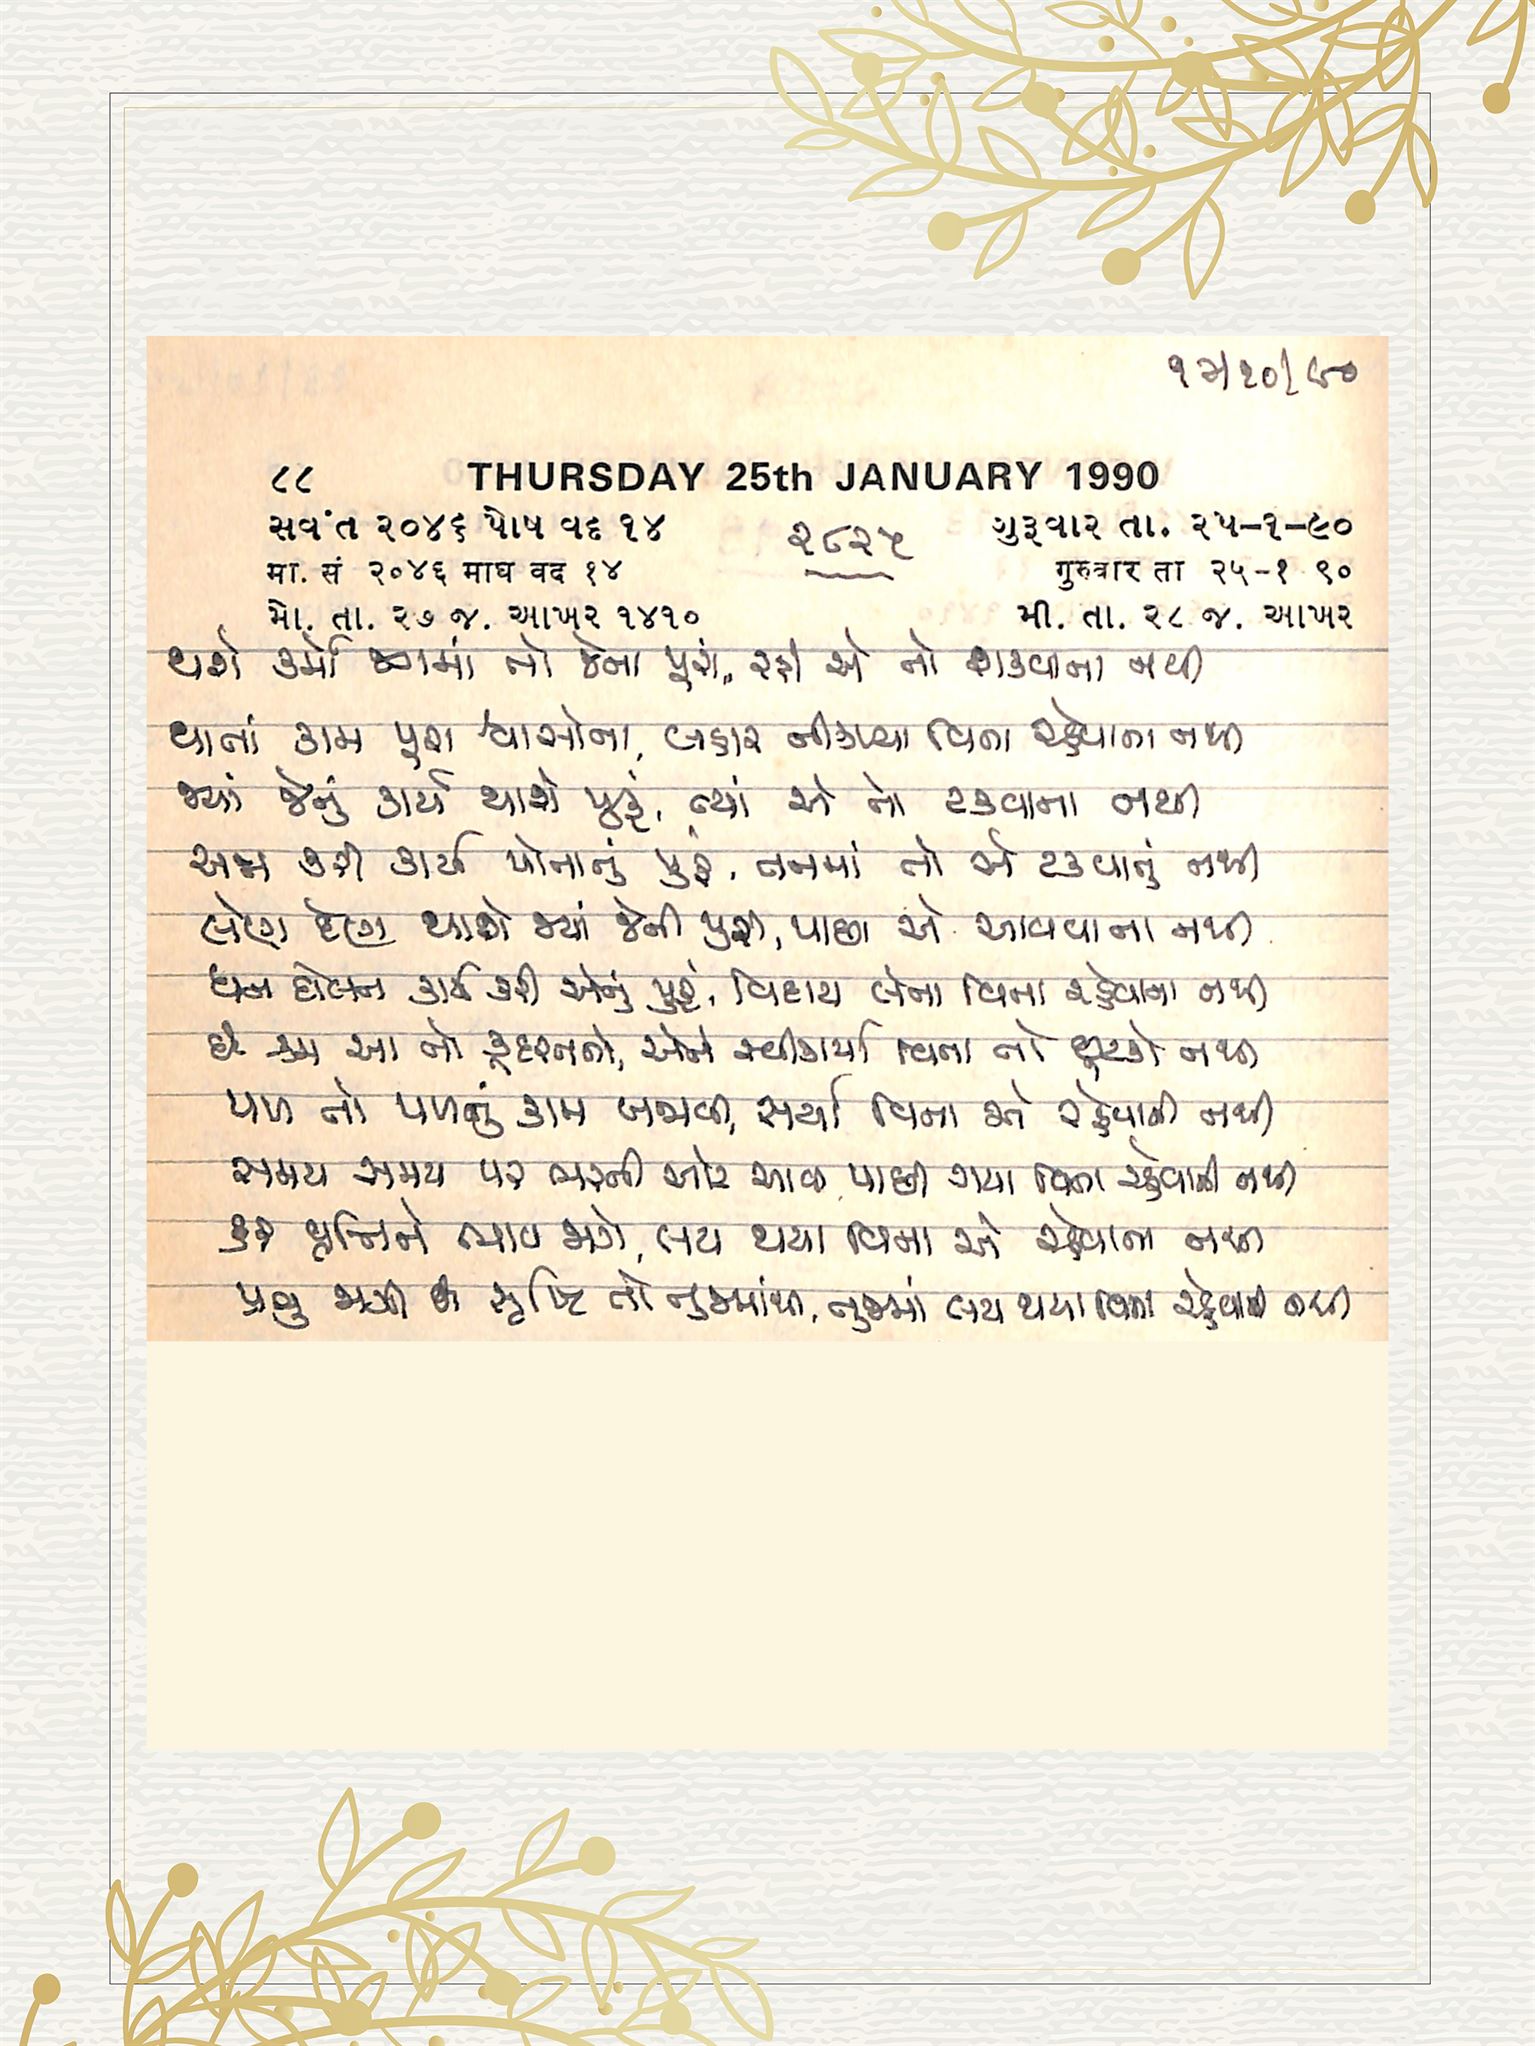 ૧૭/૧૦/૯૦
૮૮ THURSDAY 25th JANUARY 1990
સવંત ૨૦૪૬ પૌષ વદ ૧૪ ૨૮૨૫ ગુરૂવાર તા. ૨૫-૧-૯૦
मा. सं २०४६ माघ वद १४ गुरुवार ता २५-१ ९०
મૌ. તા. ૨૭ જ. આખર ૧૪૧૦ મી. તા. ૨૮ જ. આખર
થાશે કર્મો જગમાં તો જેના પૂરાં, રહી એ તો શકવાના નથી
થાતાં કામ પૂરા શ્વાસોના, બહાર નીકળ્યા વિના રહેવાના નથી
જ્યાં જેનું કાર્ય થાશે પૂરું, ત્યાં એ તો ટકવાના નથી
અન્ન કરી કાર્ય પોતાનું પુરું, તનમાં તો એ ટકવાનું નથી
લેણ દેણ થાશે જ્યાં જેની પુરી, પાછા એ આવવાના નથી
ધન દોલત કાર્ય કરી એનું પુરું, વિદાય લેતા વિના રહેવાના નથી
છે ક્રમ આ તો કૂદરતનો, એને સ્વીકાર્યા વિના તો છૂટકો નથી
પળ તો પળનું કામ બજાવી, સર્યા વિના એ રહેવાની નથી
સમય સમય પર ભરતી ઓટ આવી પાછી ગયા વિના રહેવાની નથી
વૃત્તિને ભાવ જાગે, લય થયા વિના એ રહેવાના નથી
પ્રભુ જાગી છે સૃષ્ટિ તો તુજમાંથી, તુજમાં લય થયા વિના રહેવાની નથી